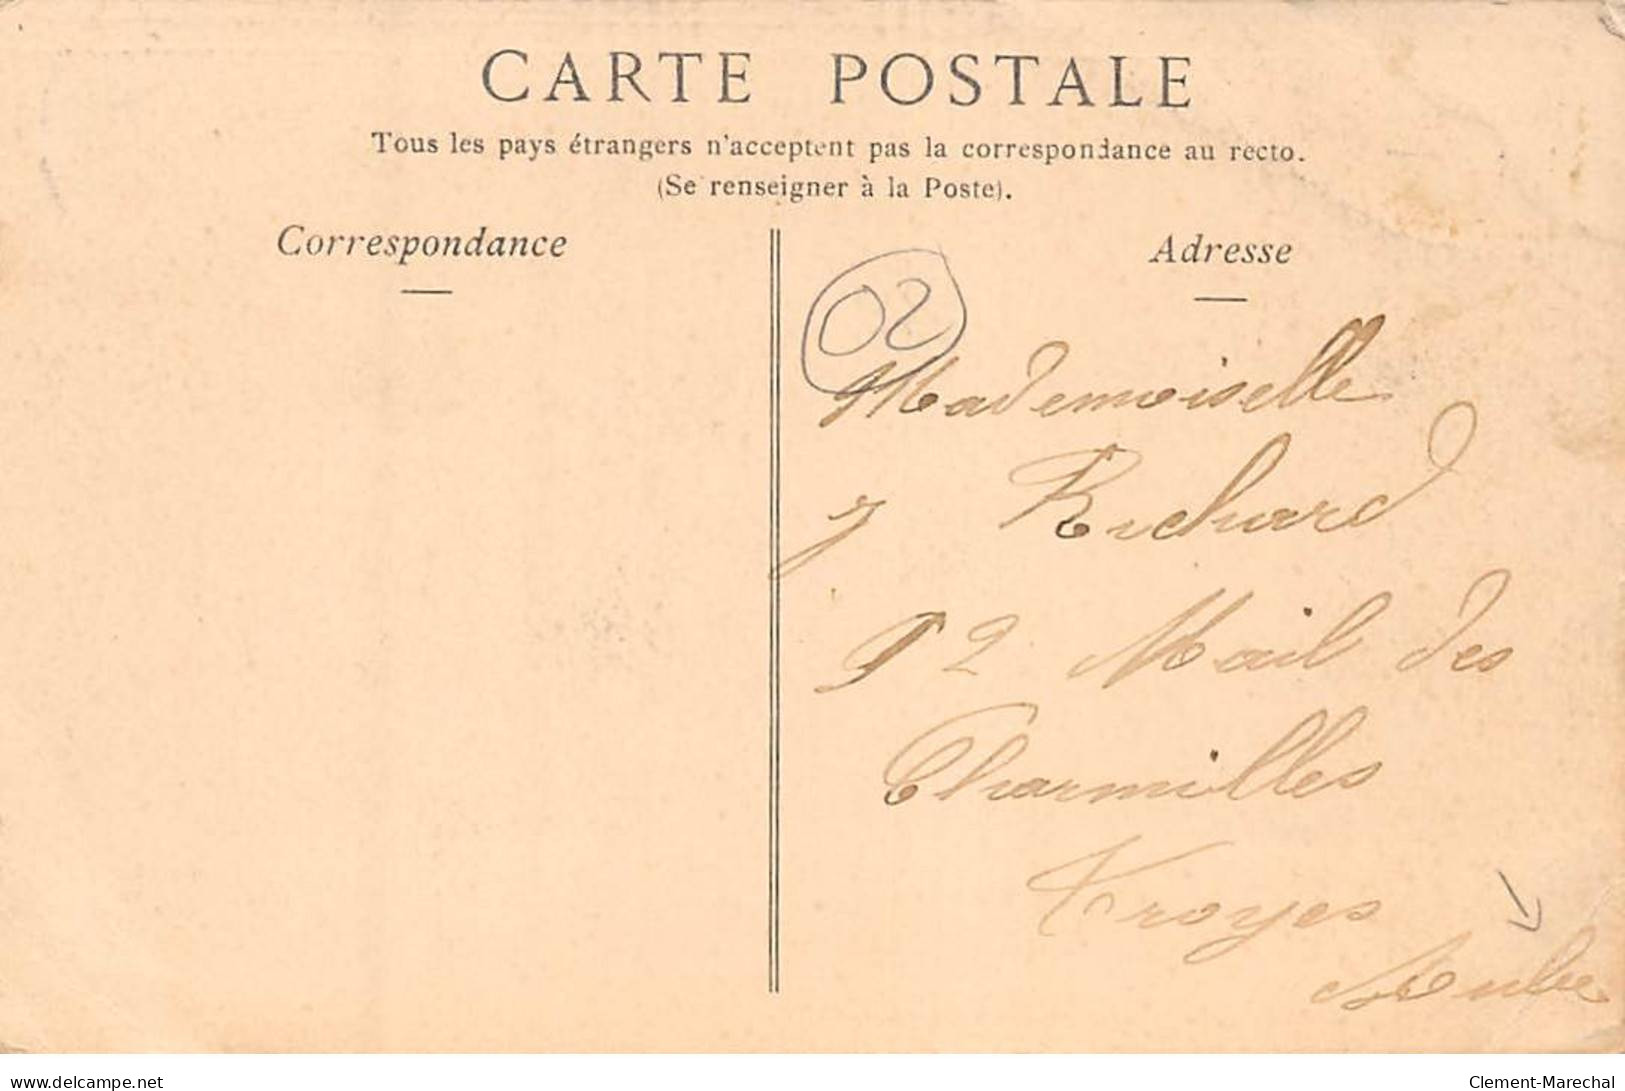 CARTE POSTALE
Tous les pays étrangers n'acceptent pas la correspondance au recto.
(Se renseigner à la Poste).
Correspondance
Adresse
02
Mademoiselle
Richard
92 Mail des
Charmilles
Troyes
Aube
www.delcampe.net
Clement-Marechal